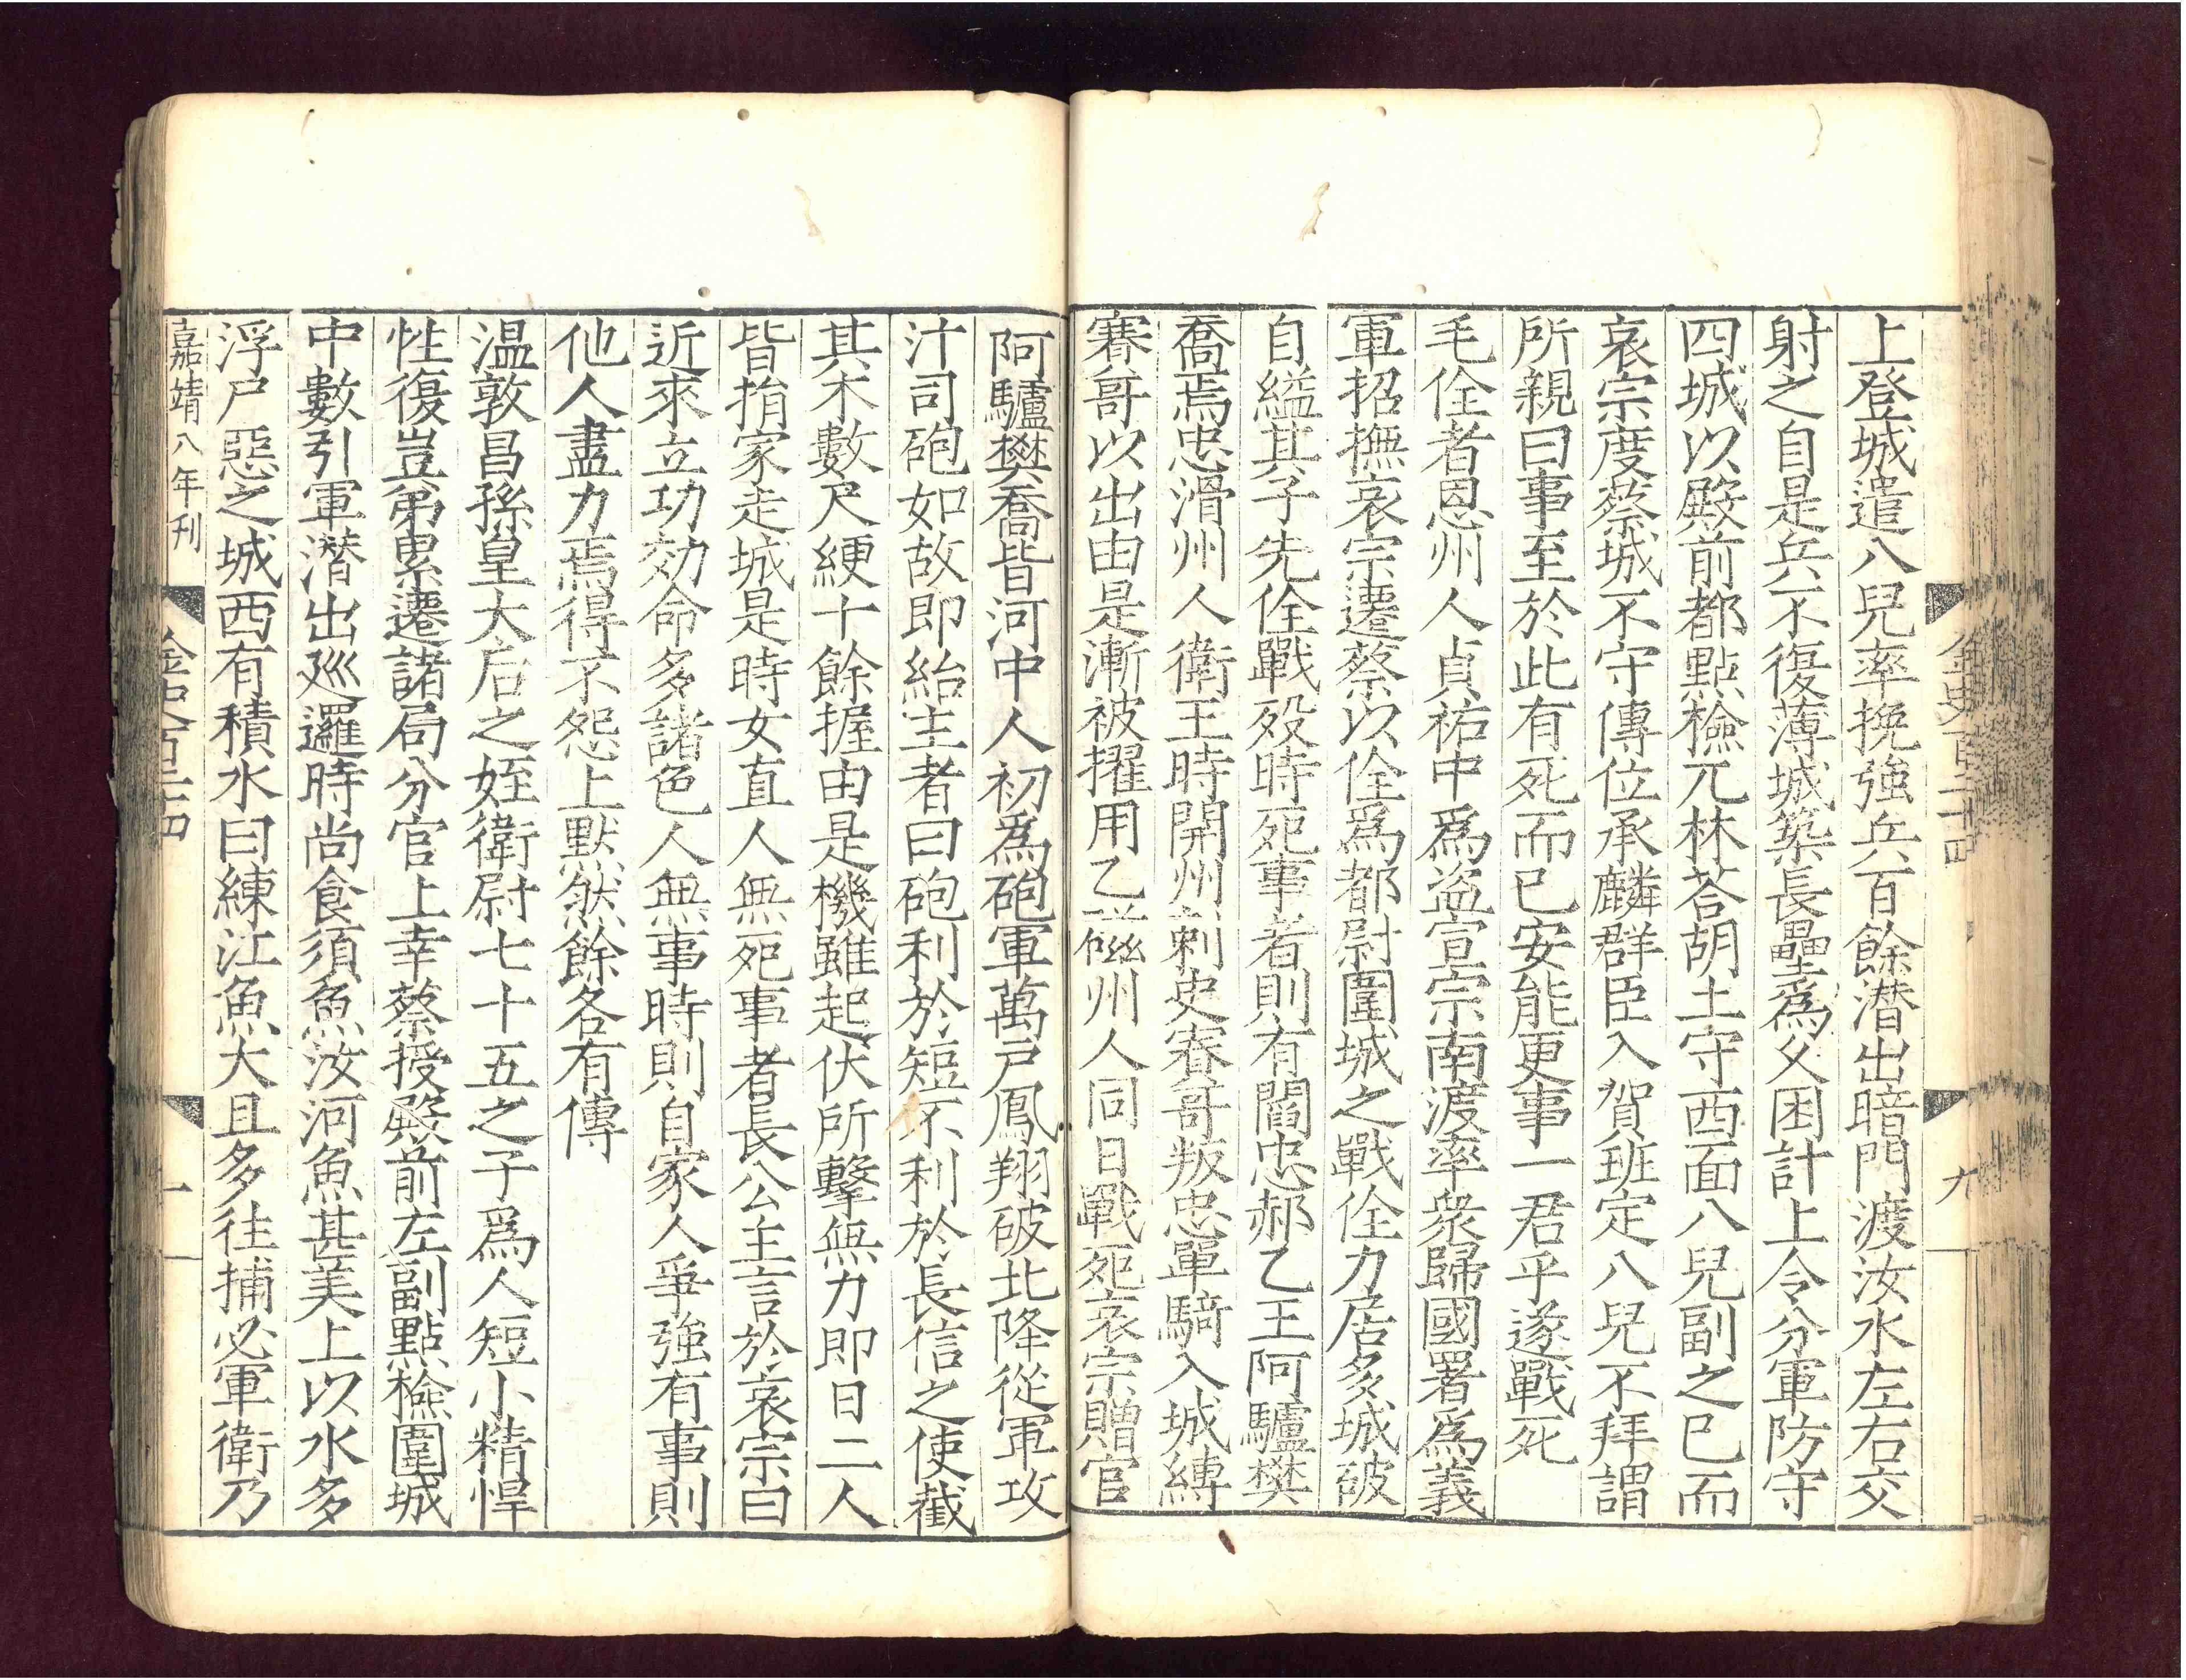 金史百二十四
九
上登城遣八兒率挽強兵百餘潜出暗門渡汝水左右交
射之自是兵不復薄城築長壘爲久困計上令分軍防守
四城以殿前都點檢兀林荅胡土守西面八兒副之已而
哀宗度蔡城不守傳位承麟群臣入賀班定八兒不拜謂
所親曰事至於此有死而已安能更事一君乎遂戰死
毛佺者恩州人貞祐中爲盗宣宗南渡率衆歸國署爲義
軍招撫哀宗遷蔡以佺爲都尉圍城之戰佺力居多城破
自縊其子先佺戰歿時死事者則有閻忠郝乙王阿驢樊
喬焉忠滑州人衛王時開州刺史賽哥叛忠單騎入城縛
賽哥以出由是漸被擢用乙磁州人同日戰死哀宗贈官
阿驢樊喬皆河中人初爲砲軍萬戸鳳翔破北降從軍攻
汴司砲如故即紿主者曰砲利於短不利於長信之使截
其木數尺綆十餘握由是機雖起伏所擊無力即日二人
皆捐家走城是時女直人無死事者長公主言於哀宗曰
近來立功効命多諸色人無事時則自家人爭強有事則
他人盡力焉得不怨上默然餘各有傳
温敦昌孫皇太后之姪衛尉七十五之子爲人短小精悍
性復豈弟累遷諸局分官上幸蔡授殿前左副點檢圍城
中數引軍潜出廵邏時尚食須魚汝河魚甚美上以水多
浮尸惡之城西有積水曰練江魚大且多往捕必軍衛乃
嘉靖八年刊